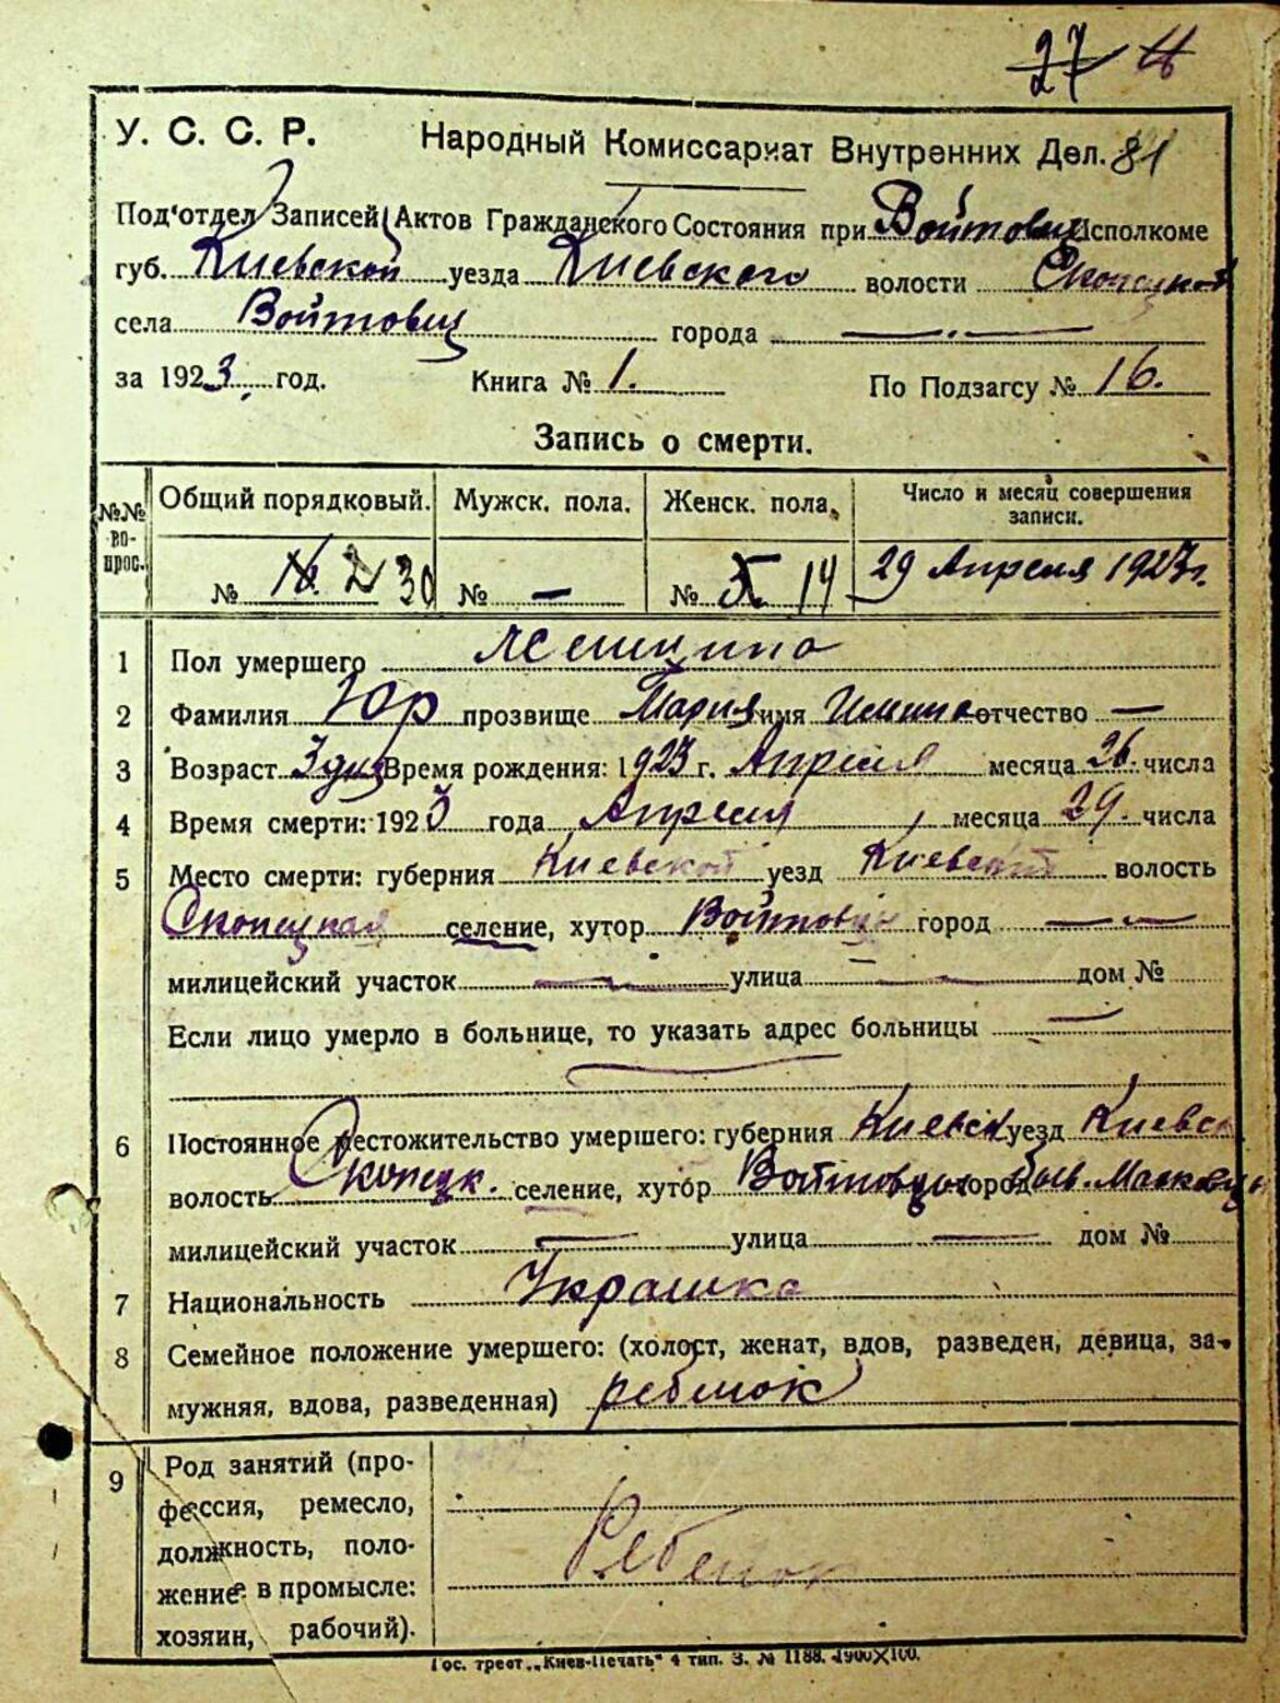 27 46
У. С. С. Р. Народный Комиссариат Внутренних Дел. 81
Под'отдел Записей Актов Гражданского Состояния при Войтовц Исполкоме
губ. Киевской уезда Киевского волости Скопецкой
села Войтовц города —
за 1923 год. Книга № 1. По Подзагсу № 16.
Запись о смерти.
№№ вопрос. Общий порядковый. Мужск. пола. Женск. пола. Число и месяц совершения записи.
№ 30 № — № 14 29 Апреля 1923 г.
1 Пол умершего
2 Фамилия Юр прозвище Мария имя отчество —
3 Возраст 3 дня Время рождения: 1923 г. Апреля месяца 26. числа
4 Время смерти: 1923 года Апреля месяца 29. числа
5 Место смерти: губерния Киевской уезд Киевский волость
Скопецкая селение, хутор Войтовцы город —
милицейский участок — улица — дом №
Если лицо умерло в больнице, то указать адрес больницы —
6 Постоянное местожительство умершего: губерния Киевск уезд Киевск
волость Скопецк. селение, хутор Войтовцы город
милицейский участок — улица — дом №
7 Национальность
8 Семейное положение умершего: (холост, женат, вдов, разведен, девица, за-
мужняя, вдова, разведенная) ребенок
9 Род занятий (про-
фессия, ремесло,
должность, поло- Ребенок
жение в промысле:
хозяин, рабочий).
Гос. трест „Киев-Печать" 4 тип. З. № 1188. 1900×100.